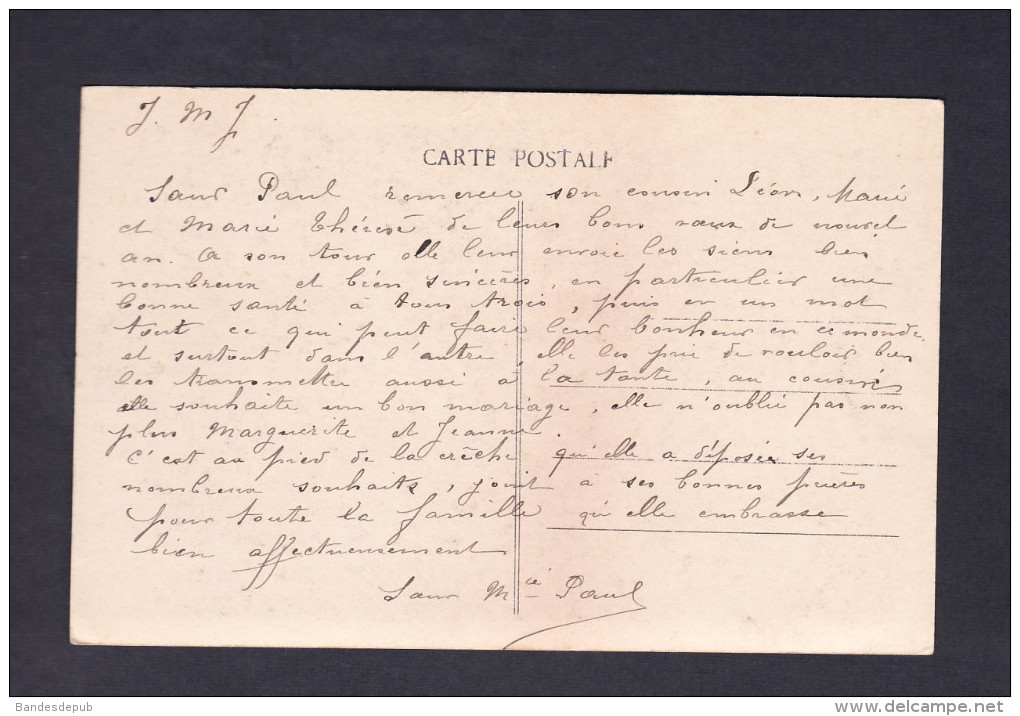 J. M J.
CARTE POSTALE
Sœur Paul remercie son cousin Léon, Marie
et Marie Thérèse de leurs bons vœux de nouvel
an. A son tour elle leur envoie les siens bien
nombreux et bien sincères, en particulier une
bonne santé à tous trois, puis en un mot
tout ce qui peut faire leur bonheur en ce monde
et surtout dans l'autre, elle les prie de vouloir bien
les transmettre aussi à la tante, au cousin
elle souhaite un bon mariage, elle n'oublie pas non
plus Marguerite et Jeanne
C'est au pied de la crèche qu'elle a déposée ses
nombreux souhaits, joint à ses bonnes prières
pour toute la famille qu'elle embrasse
bien affectueusement
Sœur Mie Paul
Bandesdepub
www.delcampe.net